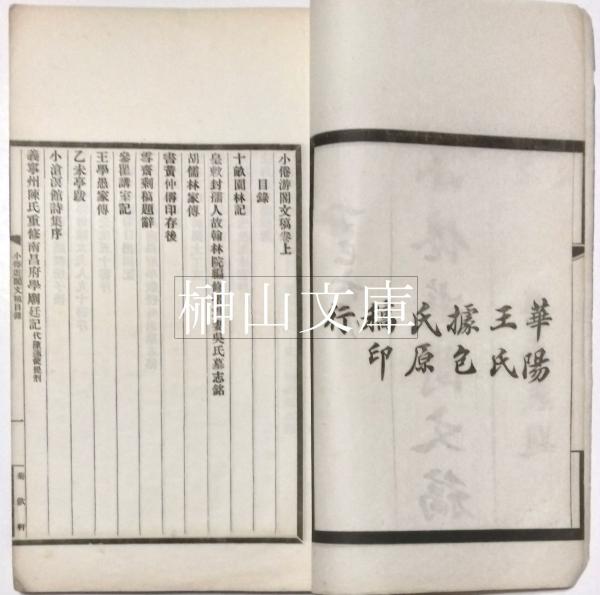 華陽
王氏
據包
氏原
稿印
行
小倦游閣文稿卷上
目錄
十畝園林記
皇敕封孺人故翰林院編修 妻吳氏墓志銘
胡儒林家傳
書黃仲儔印存後
雩齋剩稿題辭
參瞿講室記
王學愚家傳
乙未亭跋
小滄溟館詩集序
義寧州陳氏重修南昌府學廟廷記
小倦游閣文稿目錄
一
菊飲軒
榊山文庫